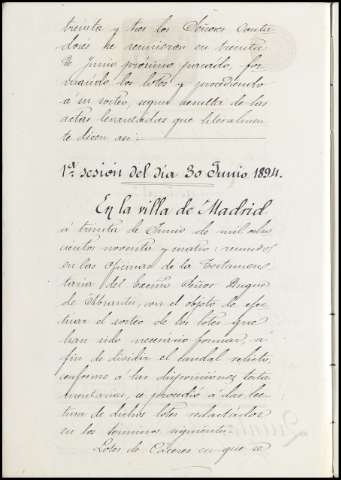 treinta y tres los Señores Conta
dores se reunieron en treinta
de Junio próximo pasado, for
mando los lotes y procediendo
á su sorteo, segun resulta de las
actas levantadas que literalmen
te dicen asi:
1ª sesión del día 30 Junio 1894.
En la villa de Madrid
á treinta de Junio de mil ocho
cientos noventa y cuatro, reunidos
en las oficinas de la Testamen
taria del Excmo Señor Duque
de Abrantes, con el objeto de efec
tuar el sorteo de los lotes que
han sido necesario formar, á
fin de dividir el caudal relicto,
conforme á las disposiciones testa
mentarias, se procedió á dar lec
tura de dichos lotes redactados
en los términos siguientes.
Lotes de Cáceres en que se